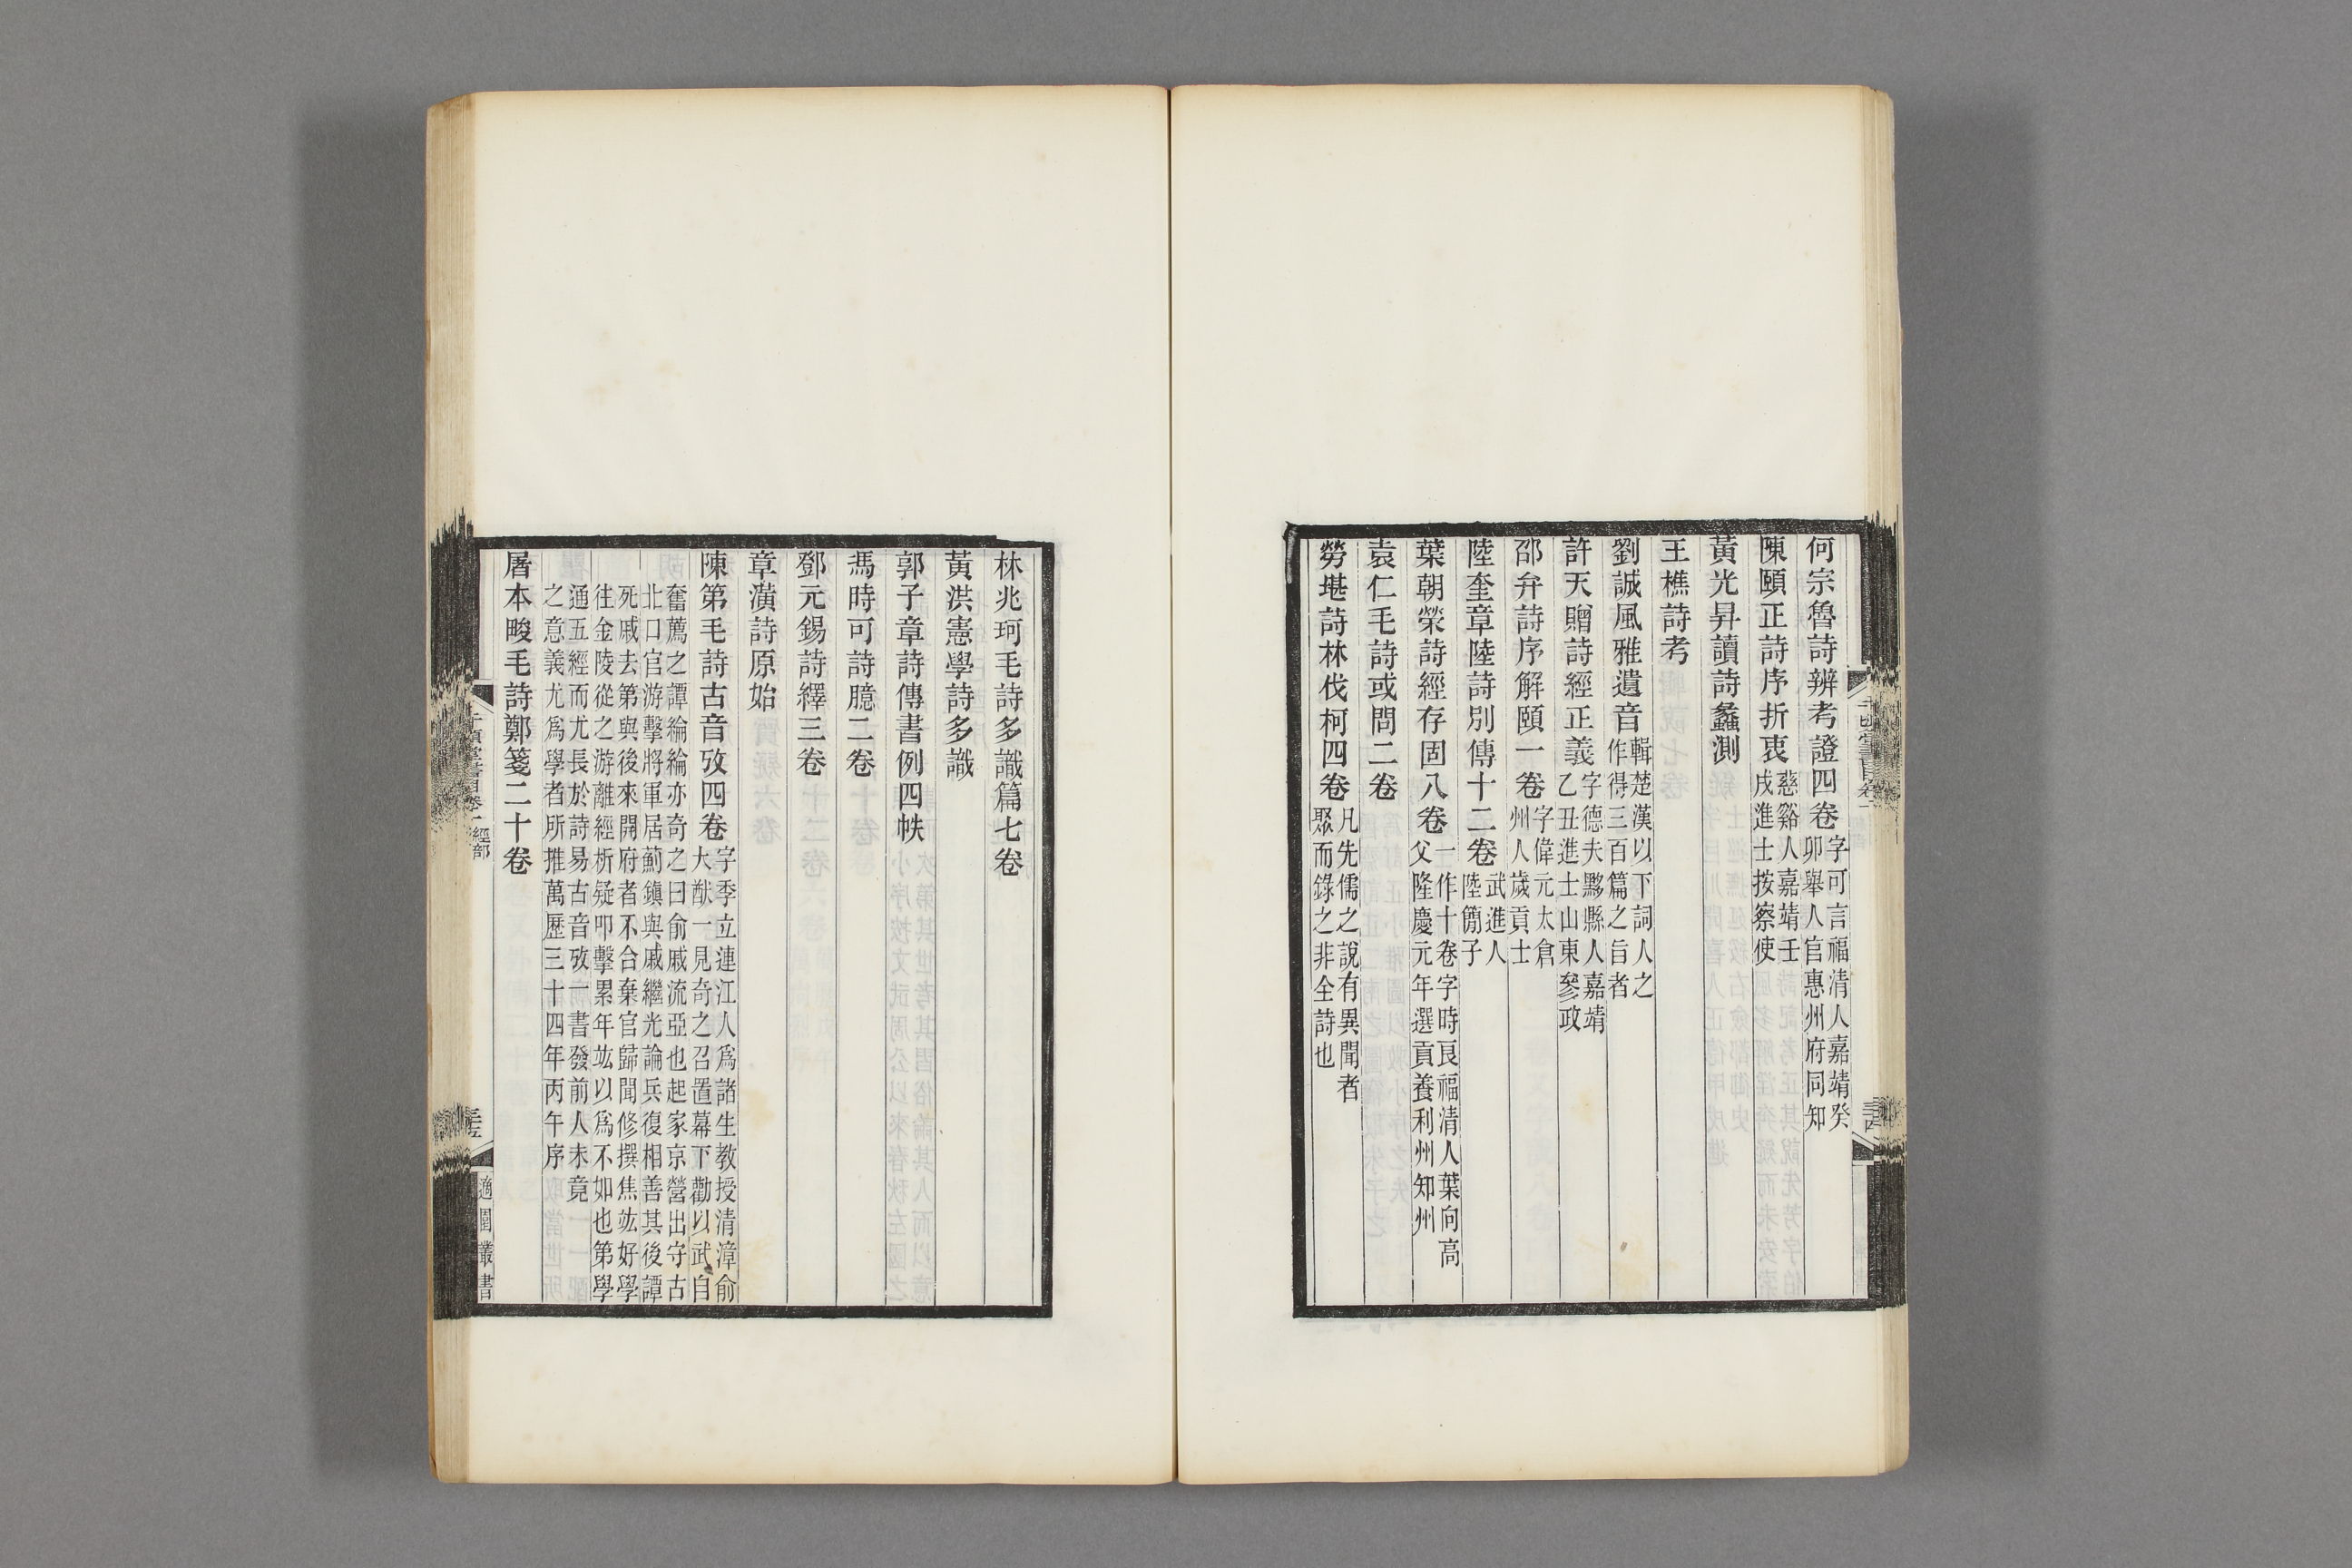 何宗魯詩辨考證四卷字可言福清人嘉靖癸
卯舉人官惠州府同知
陳頤正詩序折衷慈谿人嘉靖壬
戌進士按察使
黃光昇讀詩蠡測
王樵詩考
劉誠風雅遺音輯楚漢以下詞人之
作得三百篇之旨者
許天贈詩經正義字德夫黟縣人嘉靖
乙丑進士山東參政
邵弁詩序解頤一卷字偉元太倉
州人歲貢士
陸奎章陸詩別傳十二卷武進人
陸簡子
葉朝榮詩經存固八卷一作十卷字時良福清人葉向高
父隆慶元年選貢養利州知州
袁仁毛詩或問二卷
勞堪詩林伐柯四卷凡先儒之說有異聞者
聚而錄之非全詩也
林兆珂毛詩多識篇七卷
黃洪憲學詩多識
郭子章詩傳書例四帙
馮時可詩臆二卷
鄧元錫詩繹三卷
章潢詩原始
陳第毛詩古音攷四卷字季立連江人爲諸生教授清漳俞
大猷一見奇之召置幕下勸以武自
奮薦之譚綸綸亦奇之曰俞戚流亞也起家京營出守古
北口官游擊將軍居薊鎮與戚繼光論兵復相善其後譚
死戚去第與後來開府者不合棄官歸聞修撰焦竑好學
往金陵從之游離經析疑叩擊累年竑以爲不如也第學
通五經而尤長於詩易古音攷一書發前人未竟
之意義尤爲學者所推萬歷三十四年丙午序
屠本畯毛詩鄭箋二十卷
千頃堂書目卷一 經部
三五
適園叢書